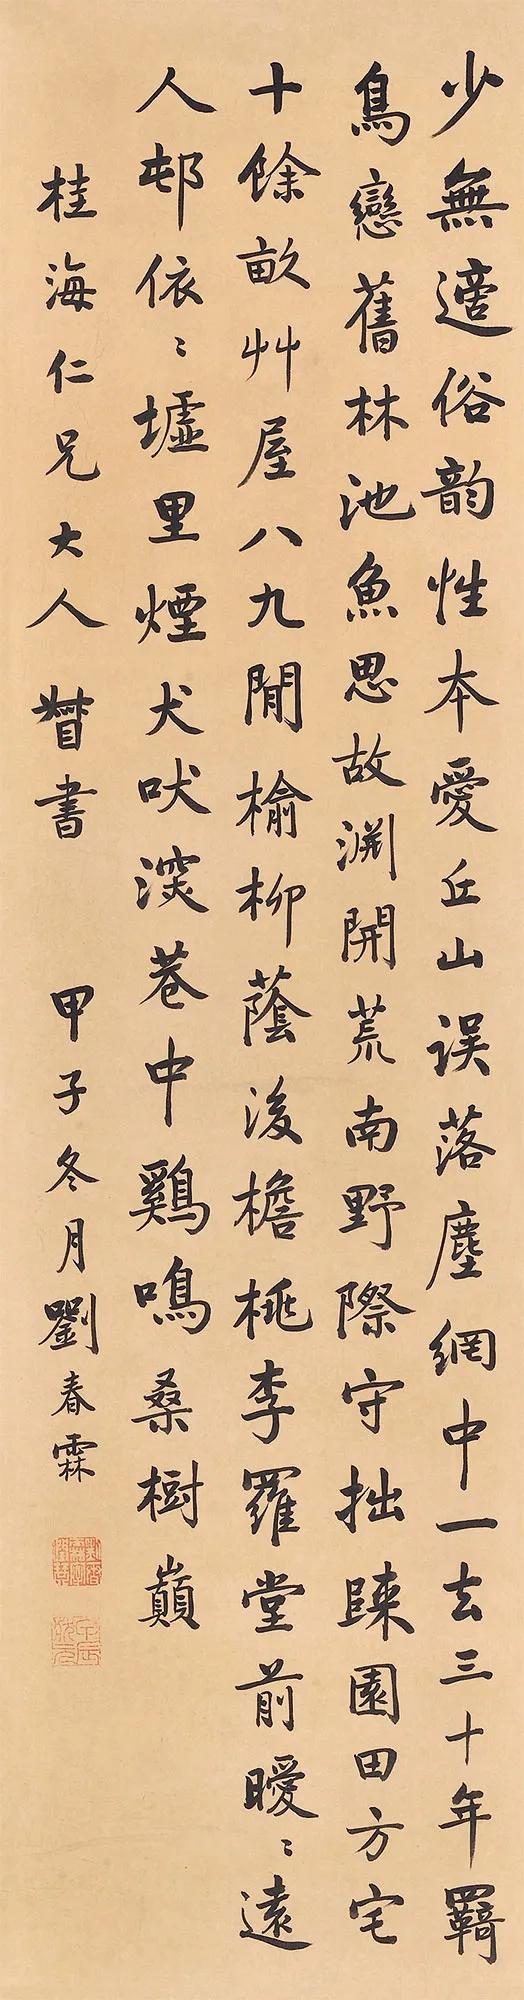 少無適俗韵性本愛丘山误落塵網中一去三十年羇
鳥戀舊林池魚思故渊開荒南野際守拙歸園田方宅
十餘畝艸屋八九間榆柳蔭後檐桃李羅堂前曖〻遠
人邨依〻墟里煙犬吠深巷中鷄鳴桑樹巔
桂海仁兄大人 詧書 甲子冬月劉春霖